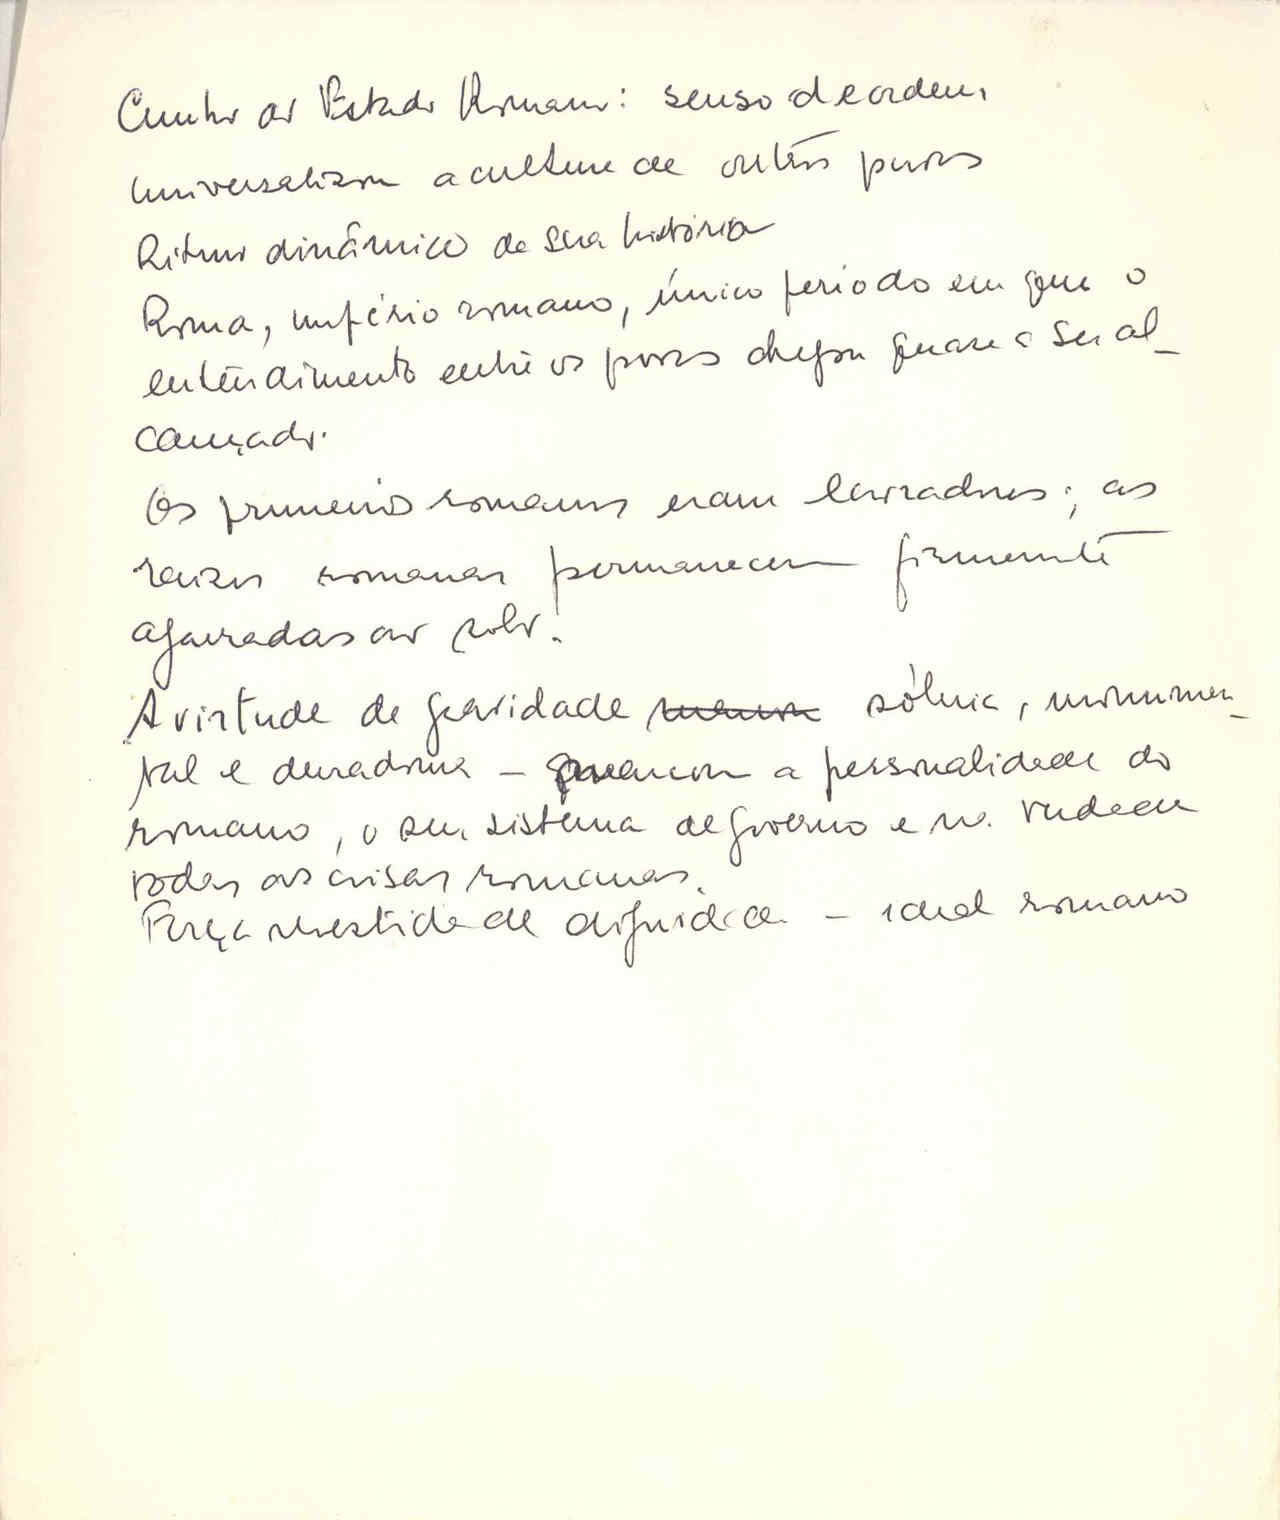 Cunho do Estado Romano: senso de ordem,
universalizou a cultura de outros povos
Ritmo dinâmico de sua história
Roma, império romano, único período em que o
entendimento entre os povos chegou quase a ser al-
cançado.
Os primeiros romanos eram lavradores; as
raízes romanas permanecem firmemente
agarradas ao solo.
A virtude de gravidade sólida, monumen-
tal e duradoura – a personalidade do
romano, o seu sistema de governo e
todas as coisas romanas.
Força revestida de dignidade – ideal romano